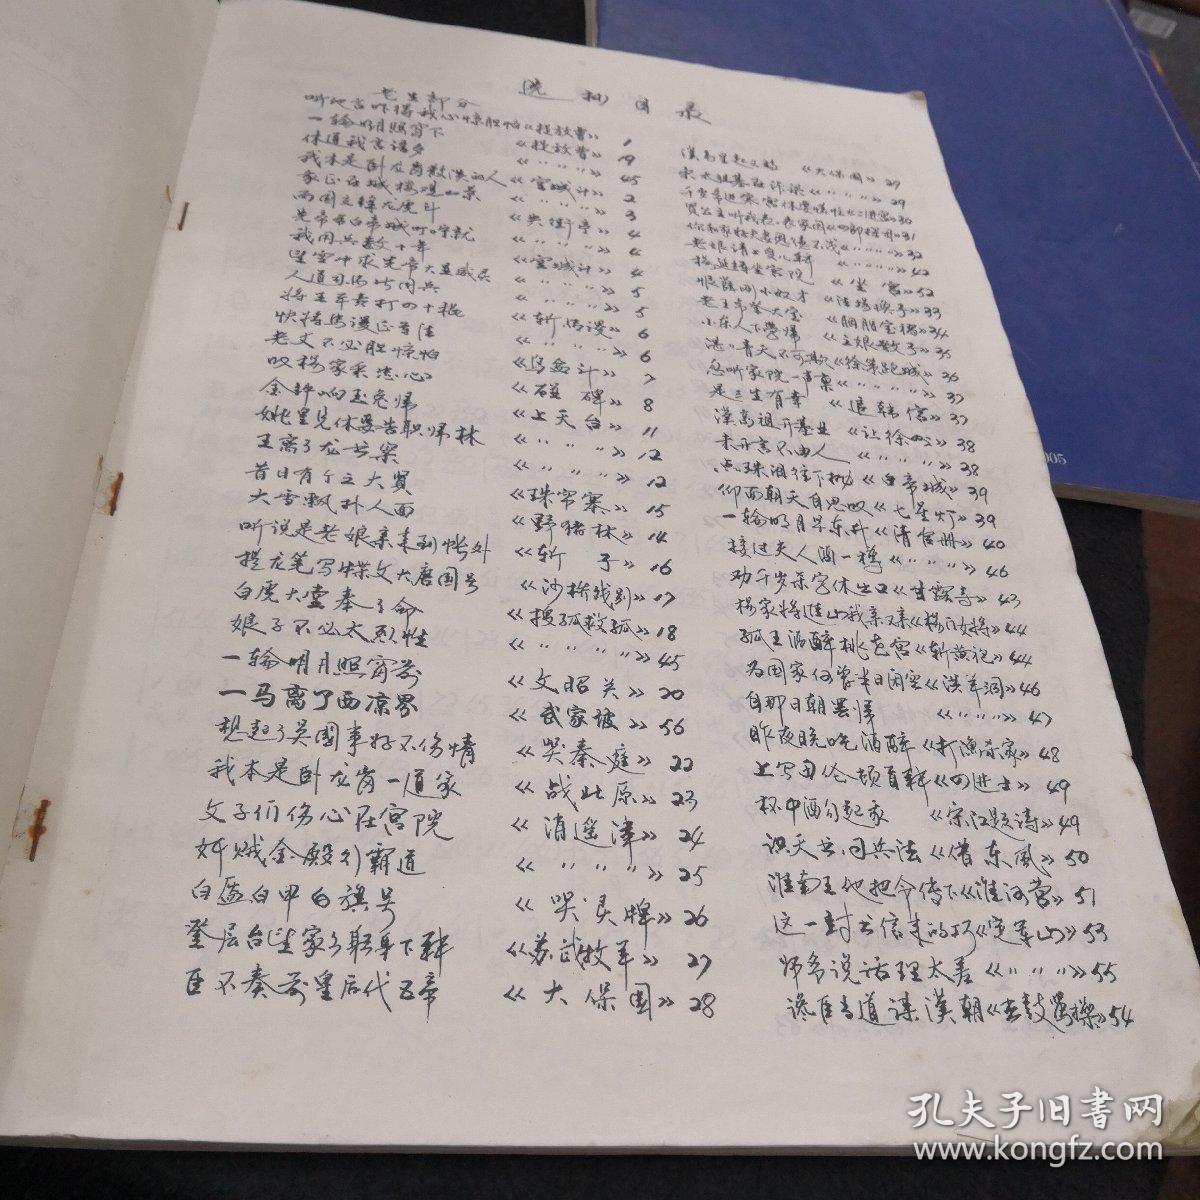 选抄目录
老生部分
听他言吓得我心惊胆怕《捉放曹》 1
一轮明月照窗下 《捉放曹》 19
休道我言语多 《〃〃〃》 45
我本是卧龙岗散淡的人 《空城计》 2
家正在城楼观山景 《〃〃〃》 3
两国交锋龙虎斗 《失街亭》 4
先帝爷白帝城叮咛就 《〃〃〃》 4
我用兵数十年 《空城计》 4
人道司马能用兵 《〃〃〃》 5
将王平责打四十棍 《斩马谡》 6
快将马谡正军法 《〃〃〃》 6
老丈不必胆惊怕 《乌盆计》 7
叹杨家秉忠心 《碰碑》 8
金钟响玉兔归 《上天台》 11
姚皇兄休要告职归林 《〃〃〃》 12
王离了龙书案 《〃〃〃》 12
昔日有个大贤 《珠帘寨》 15
大雪飘扑人面 《野猪林》 14
听说是老娘亲来到帐外 《斩子》 16
提龙笔写牒文大唐国号 《沙桥饯别》 17
白虎大堂奉了命 《搜孤救孤》 18
娘子不必太烈性 《〃〃〃〃》 45
一轮明月照窗前 《文昭关》 20
一马离了西凉界 《武家坡》 56
想起了吴国事好不伤情 《哭秦庭》 22
我本是卧龙岗一道家 《战北原》 23
父子们伤心在宫院 《消遥津》 24
奸贼金殿行霸道 《〃〃〃》 25
白盔白甲白旗号 《哭灵牌》 26
登层台望家乡躬身下拜 《苏武牧羊》 27
臣不奏前皇后代五帝 《大保国》 28
汉高皇起义 《大保国》 29
千岁爷进寒宫休要慌忙《二进宫》30
贤公主听我表表家园《四郎探母》31
老娘请上受儿拜 《〃〃〃》 42
杨延辉坐宫院 《坐宫》52
恨薛刚小奴才 《法场换子》33
老王爷登大宝 《胭脂宝褶》34
小东人下学归 《三娘教子》35
湛湛青天不可欺《徐策跑城》36
忽听家院一声禀《〃〃〃〃》37
是三生有幸 《追韩信》37
汉高祖开基业 《让徐州》38
未开言不由人 《〃〃〃》38
点珠泪往下抛 《白帝城》39
仰面朝天自思叹《七星灯》39
一轮明月早东升《清官册》40
接过夫人酒一樽《〃〃〃》46
劝千岁杀字休出口《甘露寺》43
杨家将进山我亲又亲《杨门女将》44
孤王酒醉桃花宫《斩黄袍》44
为国家何曾半日闲空《洪羊洞》46
自那日朝罢归 《〃〃〃》47
昨夜晚吃酒醉《打渔杀家》48
上写田伦顿首拜《四进士》49
杯中酒勾起家 《宋江题诗》49
识天书习兵法《借东风》50
淮南王他把令传下《淮河营》51
这一封书信来的巧《定军山》53
师爷说话理太差《〃〃〃》55
谗臣当道谋汉朝《击鼓骂操》54
005
孔夫子旧书网
www.kongfz.com